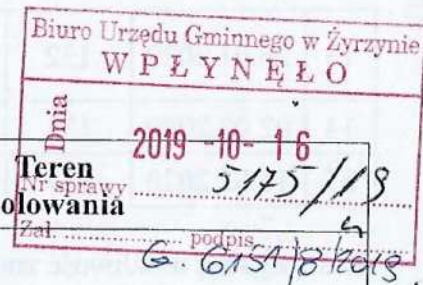 Biuro Urzędu Gminnego w Żyrzynie
WPŁYNĘŁO
Dnia 2019 -10- 16
Teren
Nr sprawy 5175/19
olowania
Zał. podpis
G. 6151/8/2019